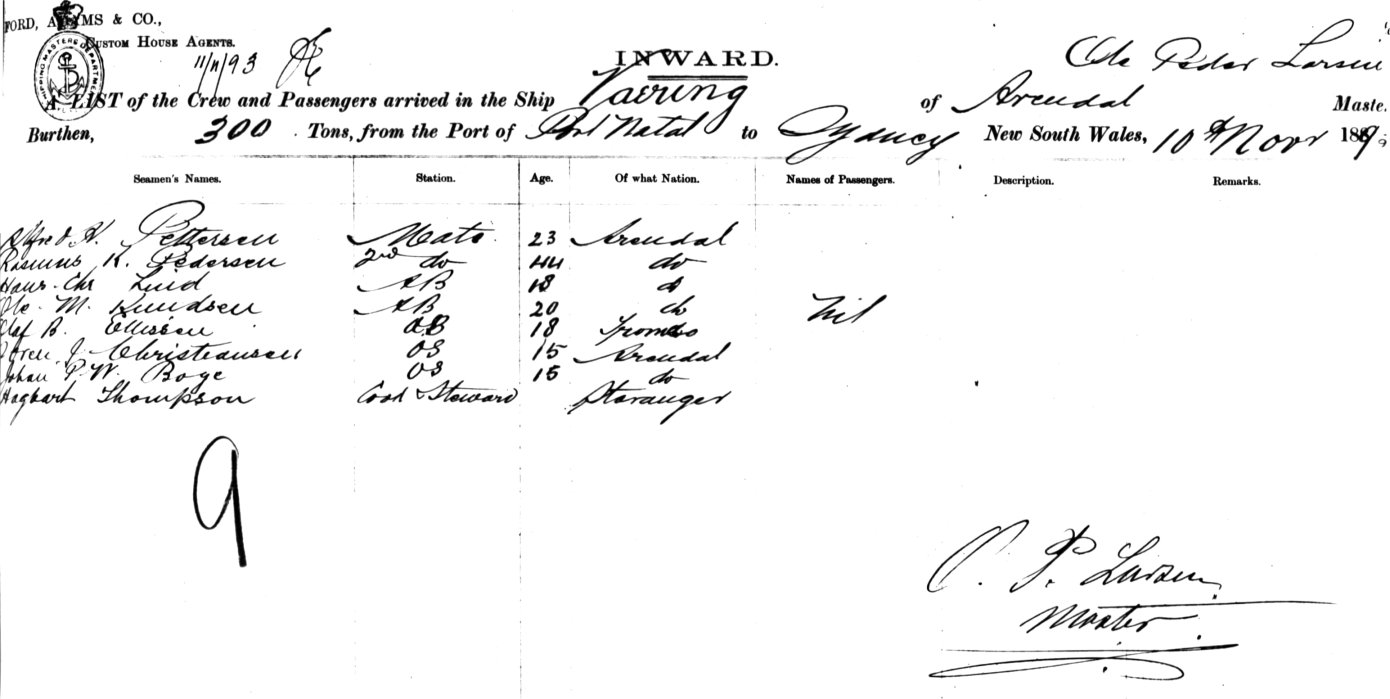 FORD, ADAMS & CO.,
CUSTOM HOUSE AGENTS.
SHIPPING MASTERS DEPARTMENT
11/11/93
INWARD.
Ole Peder Larsen
A LIST of the Crew and Passengers arrived in the Ship Vaering of Arendal Maste.
Burthen, 300 Tons, from the Port of Port Natal to Sydney New South Wales, 10th Novr 189
Seamen's Names. Station. Age. Of what Nation. Names of Passengers. Description. Remarks.
Alfred H. Pettersen Mate 23 Arendal
Rasmus K. Pedersen 2nd do 44 do
Hans Chr Lind AB 18 do
Ole M. Knudsen AB 20 do Nil
Olaf B. Ellissen OS 18 Tromso
Soren J. Christiansen OS 15 Arendal
Johan P. W. Boge OS 15 do
Hagbart Thompson Cook & Steward Stavanger
9
O. P. Larsen
Master